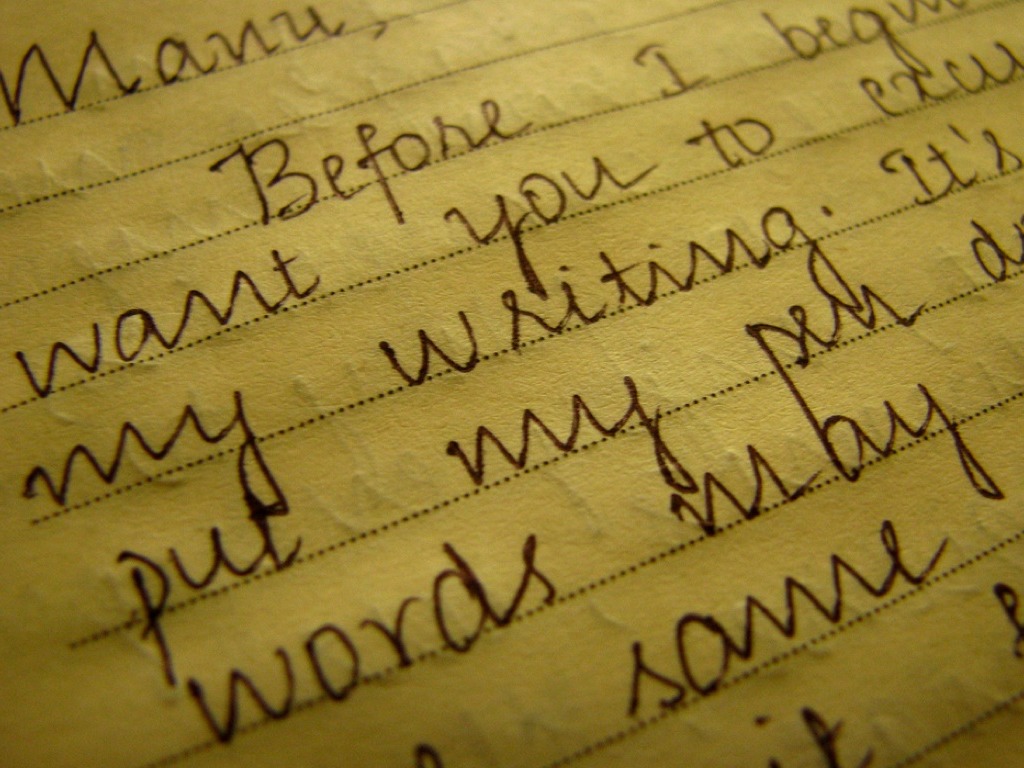 Manu,
Before I begin
want you to excu
my writing. It's
put my pen
words may
same
it